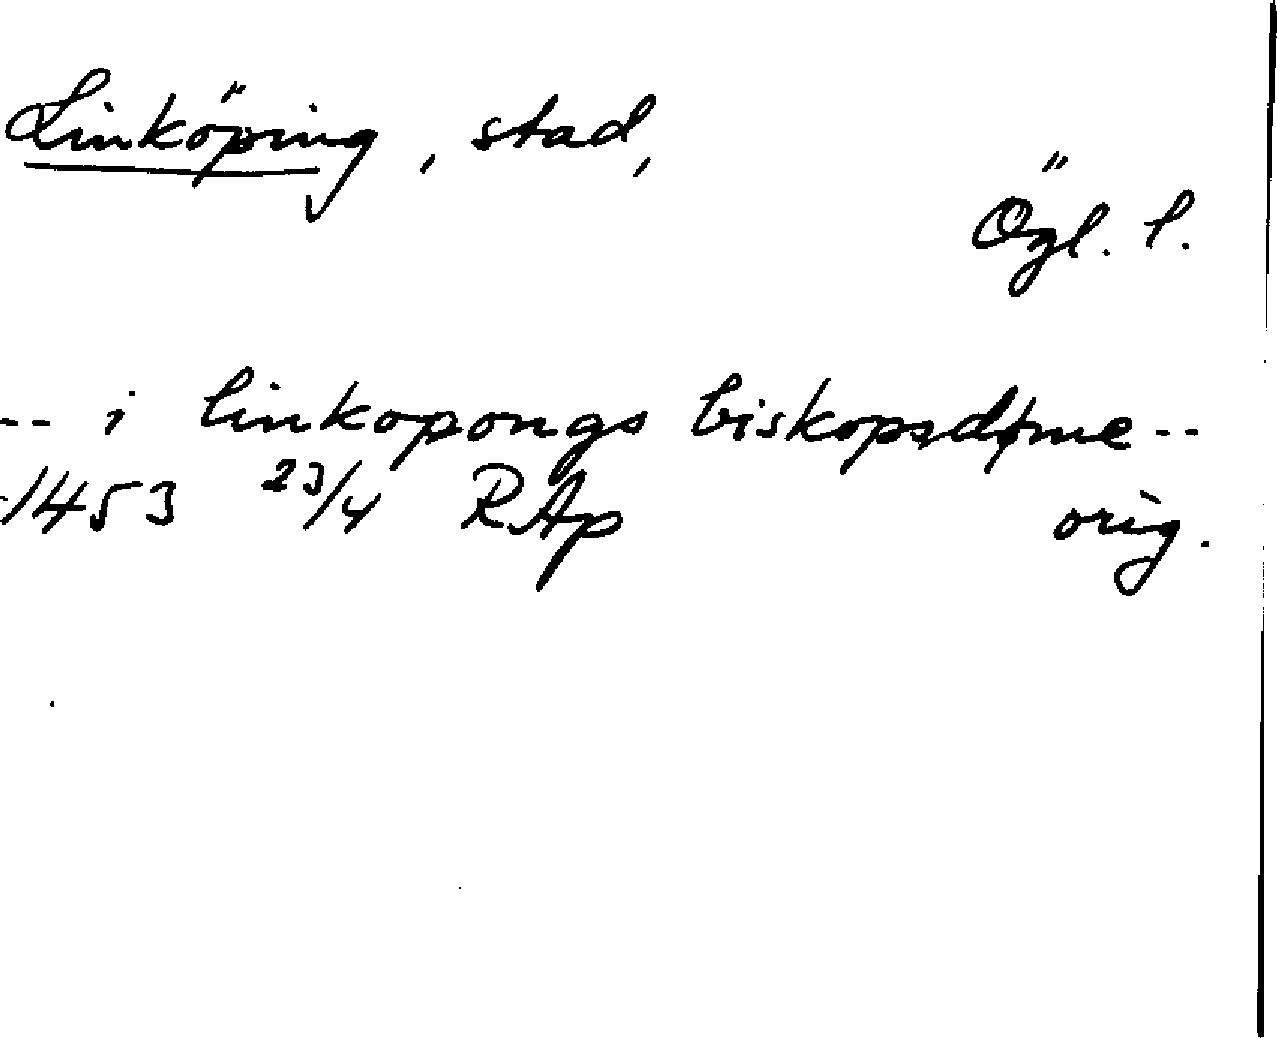 Linköping, stad,
Ögl. l.
-- i linkopongs biskopsdøme --
1453 23/4 RAp orig.